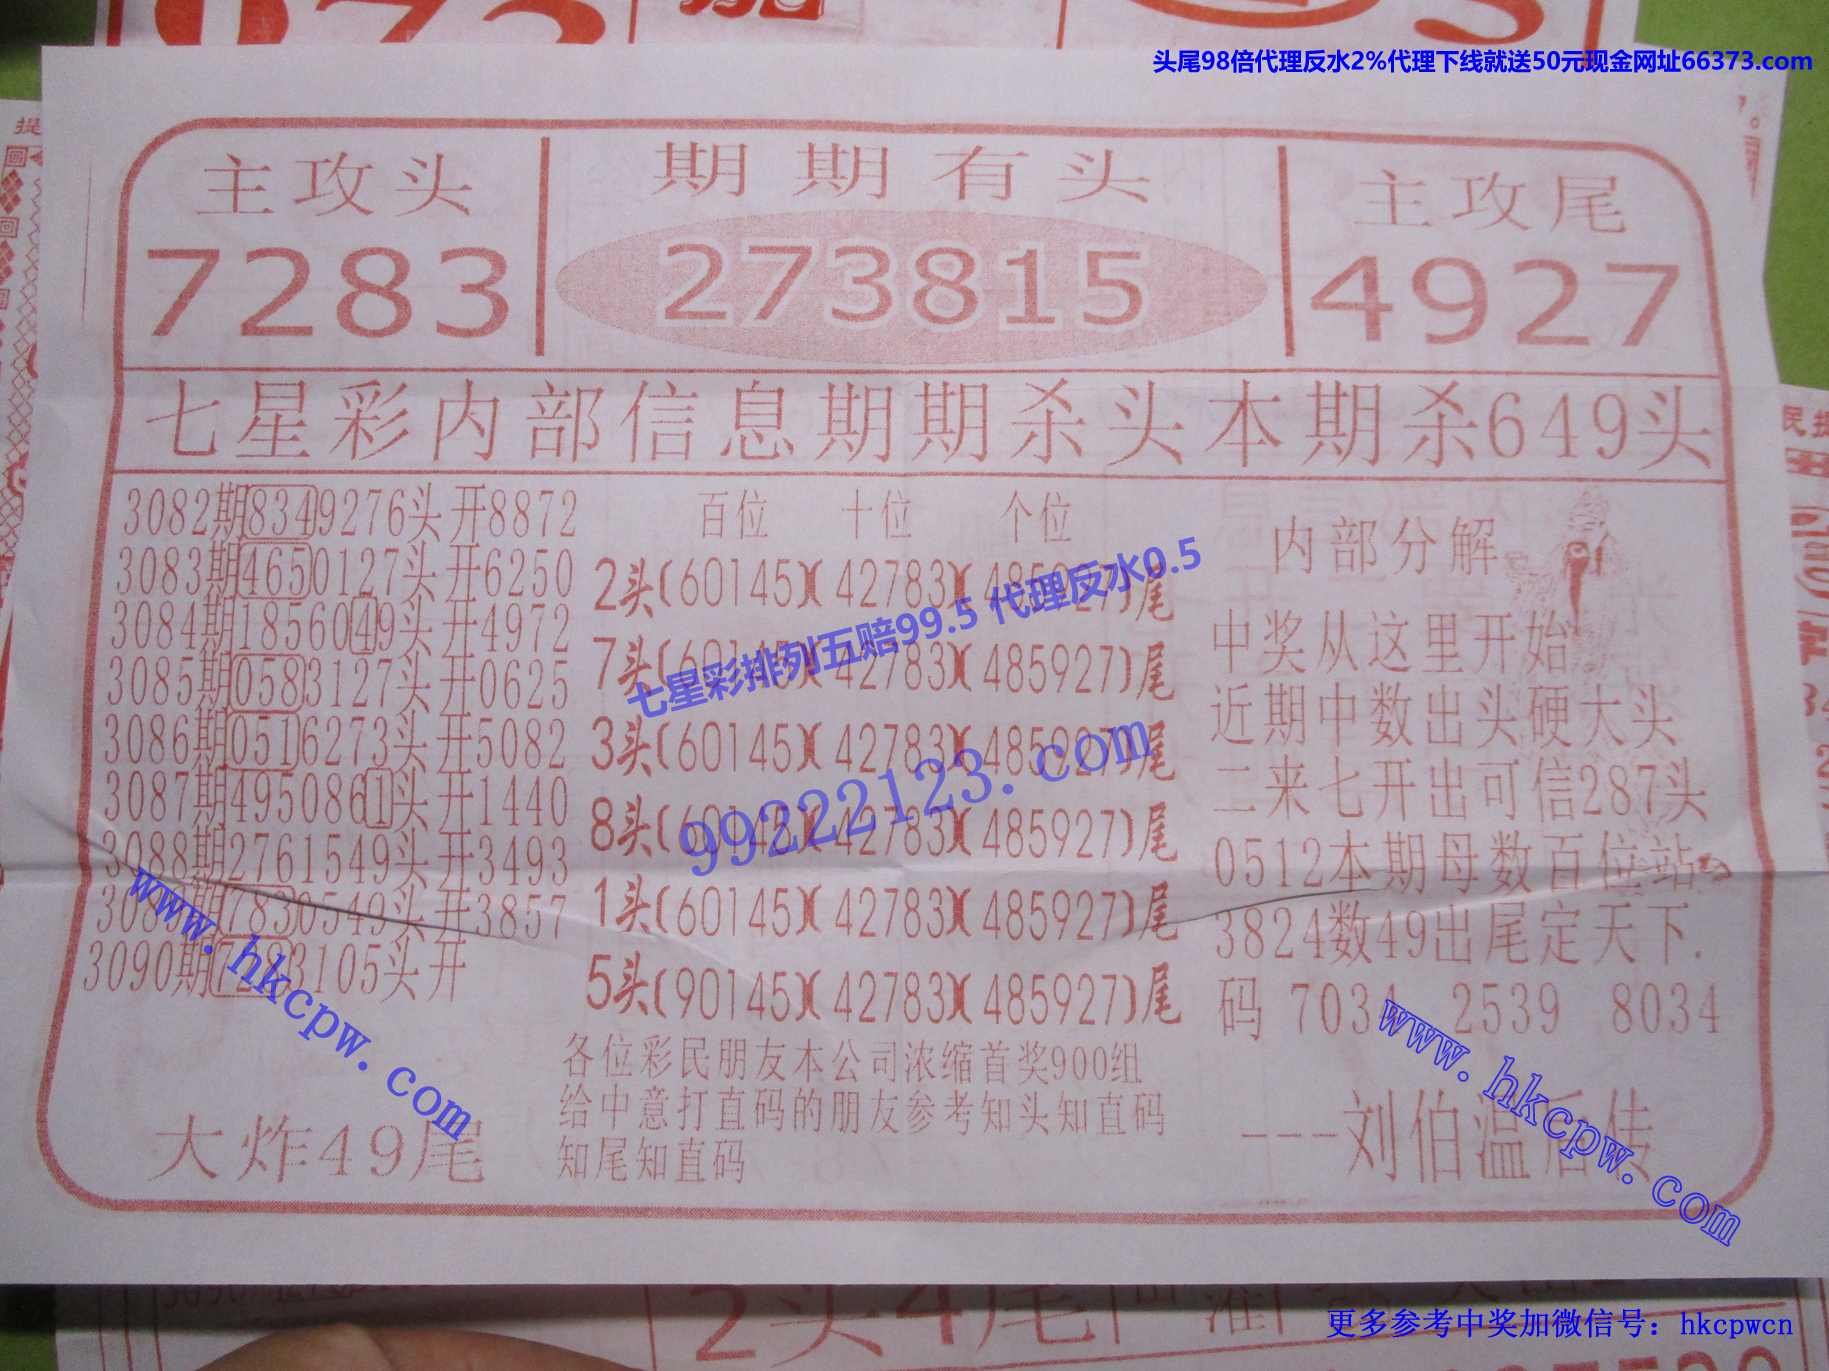 头尾98倍代理反水2%代理下线就送50元现金网址66373.com
主攻头
7283
期期有头
273815
主攻尾
4927
七星彩内部信息期期杀头本期杀649头
3082期8349276头开8872
3083期4650127头开6250
3084期1856049头开4972
3085期0583127头开0625
3086期0516273头开5082
3087期4950861头开1440
3088期2761549头开3493
3089期7830549头开3857
3090期7283105头开
大炸49尾
百位 十位 个位
2头(60145)(42783)(485927)尾
7头(60145)(42783)(485927)尾
3头(60145)(42783)(485927)尾
8头(60145)(42783)(485927)尾
1头(60145)(42783)(485927)尾
5头(90145)(42783)(485927)尾
各位彩民朋友本公司浓缩首奖900组
给中意打直码的朋友参考知头知直码
知尾知直码
内部分解
中奖从这里开始
近期中数出头硬大头
二来七开出可信287头
0512本期母数百位站
3824数49出尾定天下.
码 7034 2539 8034
---刘伯温后传
七星彩排列五赔99.5 代理反水0.5
99222123.com
www.hkcpw.com
www.hkcpw.com
2头4尾
更多参考中奖加微信号：hkcpwcn